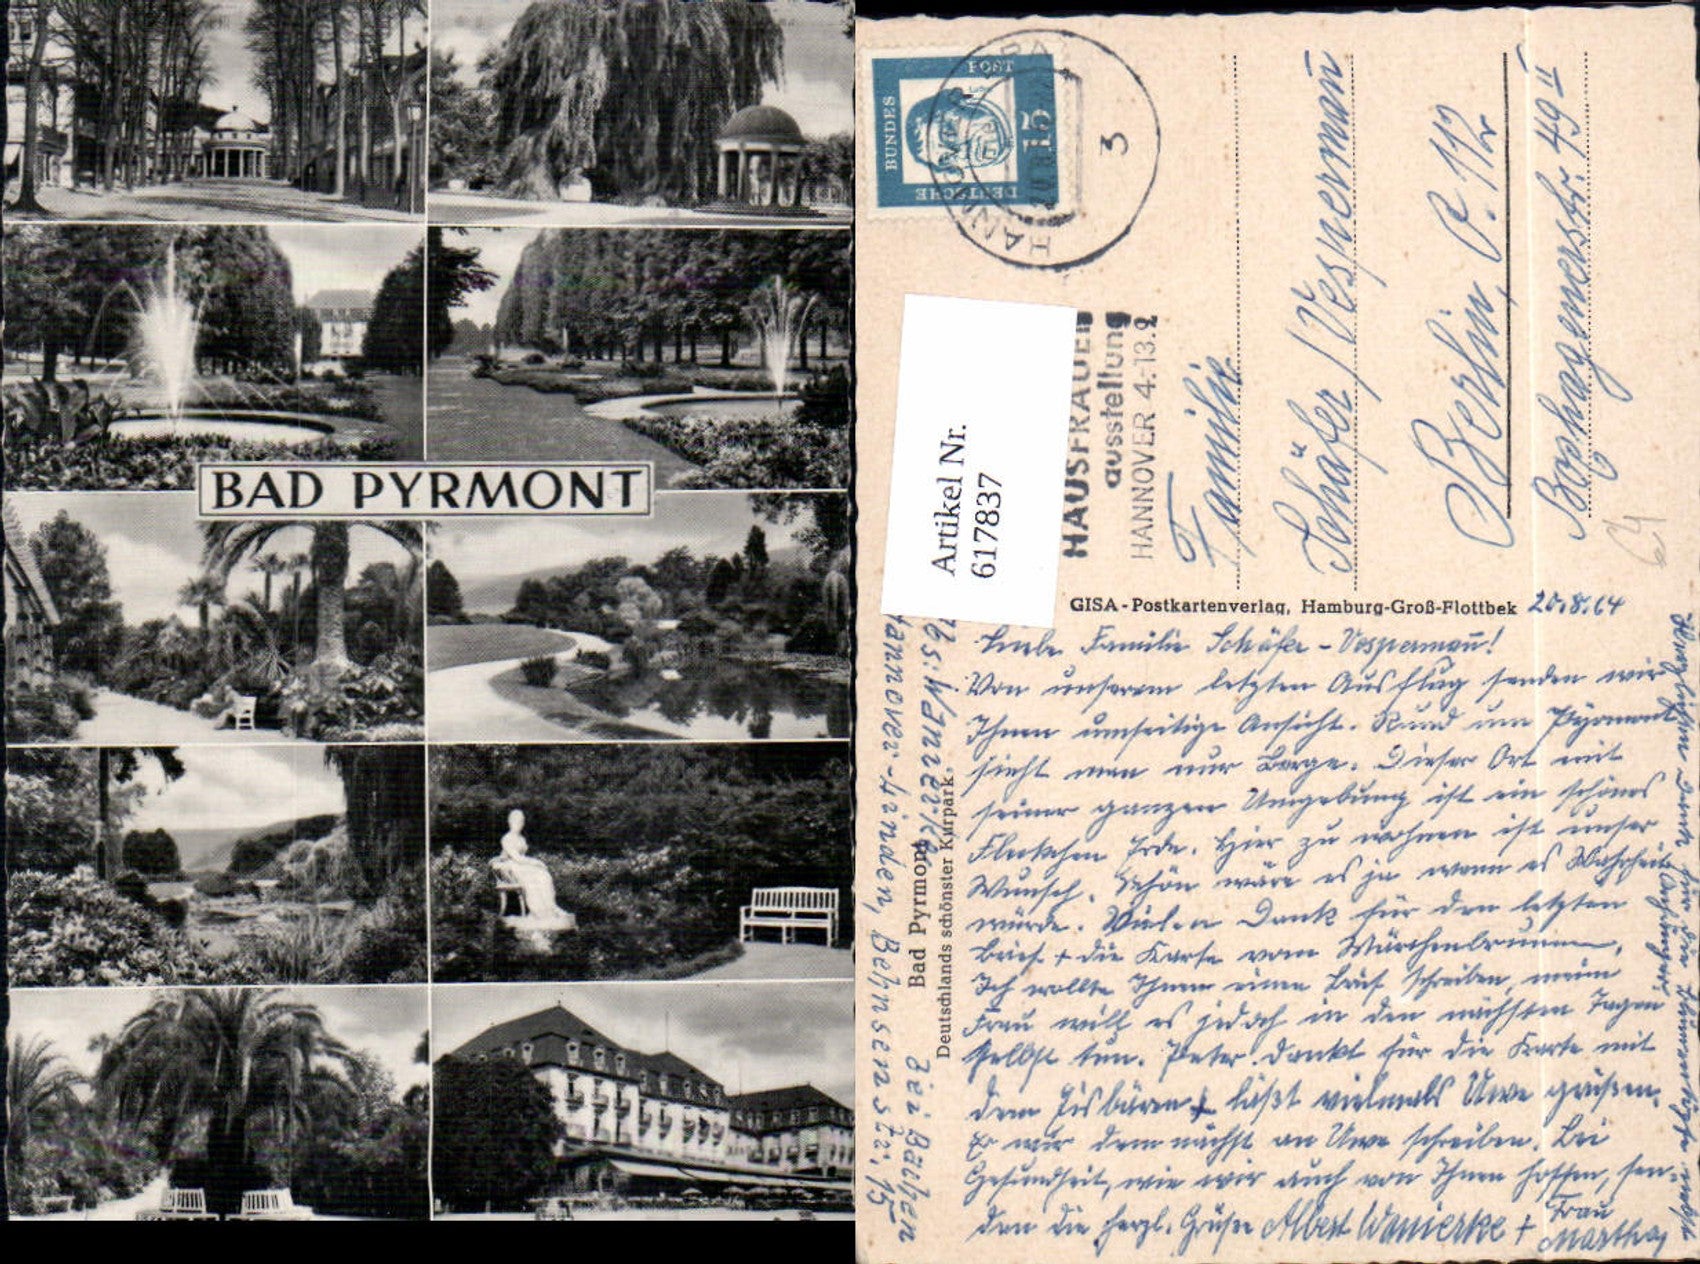 BAD PYRMONT
DEUTSCHE
BUNDES
POST
15
HANNOVER
3
HAUSFRAUEN
ausstellung
HANNOVER 4.-13.9.
Artikel Nr.
617837
Familie
Schäfer/Vespermañ
Berlin, O. 112
Boxhagenerstr. 49 II
64
GISA-Postkartenverlag, Hamburg-Groß-Flottbek
20.8.64
Liebe Familie Schäfer-Vespermañ!
Von unserem letzten Ausflug senden wir
Ihnen umseitige Ansicht. Rund um Pyrmont
sieht man nur Berge. Dieser Ort mit
seiner ganzen Umgebung ist ein schönes
Fleckchen Erde. Hier zu wohnen ist unser
Wunsch. Schön wäre es ja wenn es Wahrheit
würde. Vielen Dank für den letzten
Brief + die Karte vom Märchenbrunnen.
Ich wollte Ihnen einen Brief schreiben, meine
Frau will es jedoch in den nächsten Tagen
selbst tun. Peter dankt für die Karte mit
dem Eisbären + läßt vielmals Uwe grüßen.
Er wir demnächst an Uwe schreiben. Bei
Gesundheit, wie wir auch von Ihnen hoffen, sen-
den die herzl. Grüße Albert Wannerke + Frau
Martha,
Abs: Wannerke
Hannover-Linden, Behnsenstr. 15
Bad Pyrmont
Deutschlands schönster Kurpark